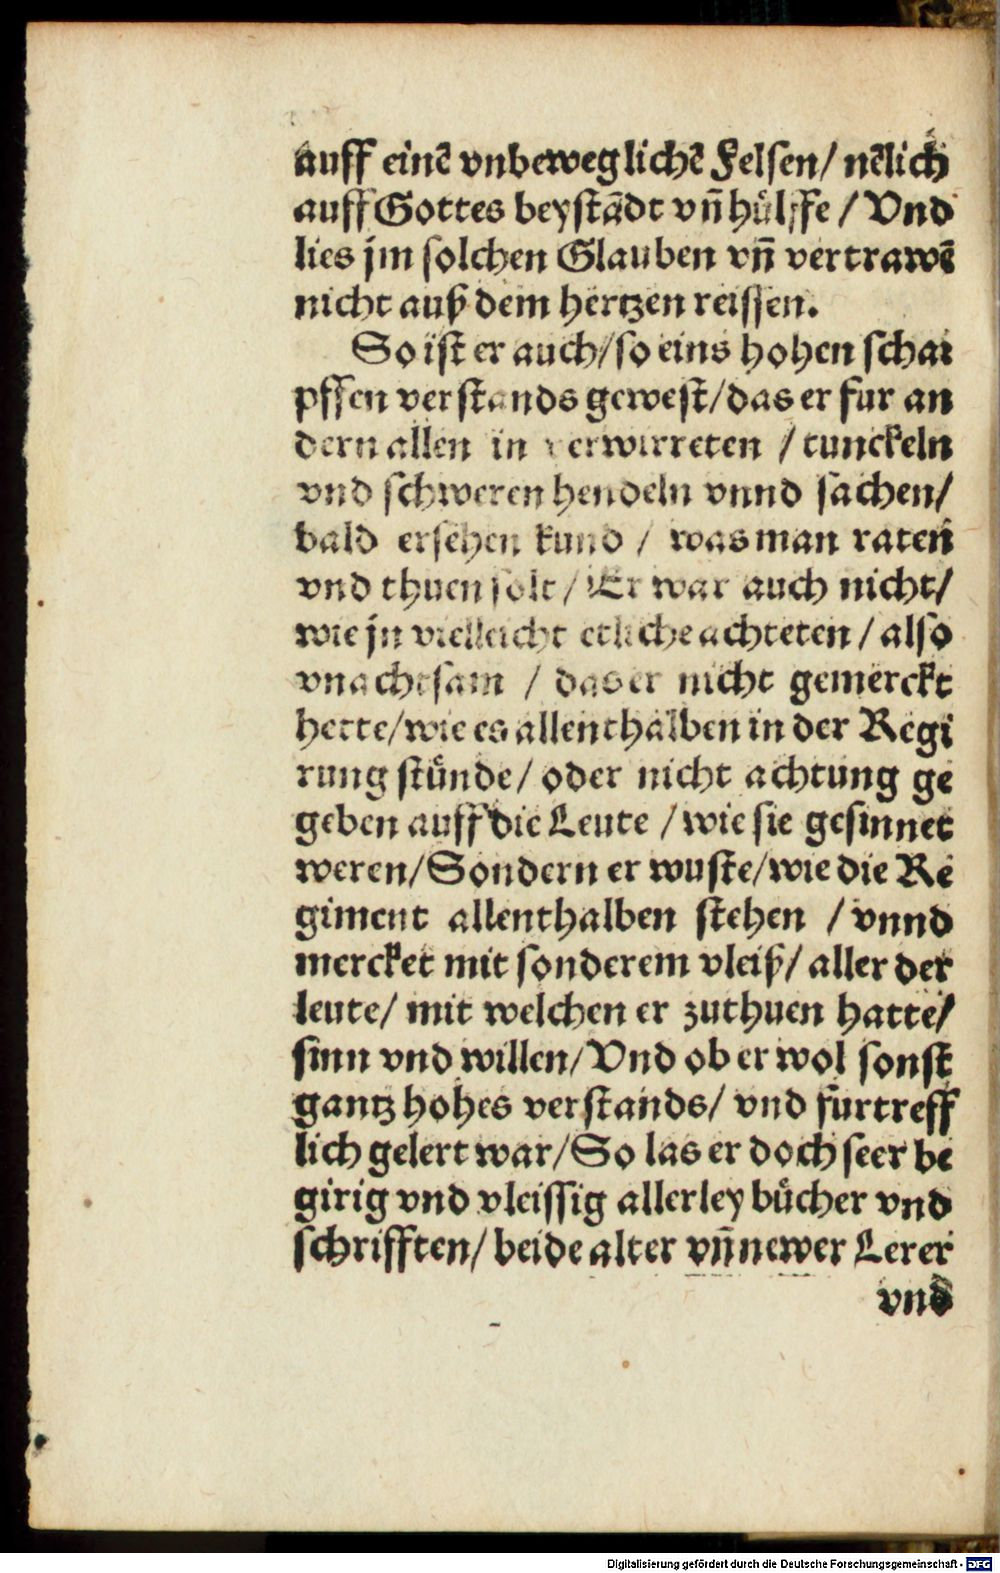 auff einē vnbeweglichē Felsen/ nēlich
auff Gottes beystādt vn̄ hülffe / Vnd
lies jm solchen Glauben vn̄ vertrawē
nicht auß dem hertzen reissen.
So ist er auch/so eins hohen schar
pffen verstands gewest/das er fur an
dern allen in verwirreten / tunckeln
vnd schweren hendeln vnnd sachen/
bald ersehen kund / was man raten
vnd thuen solt / Er war auch nicht/
wie jn vielleicht etliche achteten / also
vnachtsam / das er nicht gemerckt
hette/wie es allenthalben in der Regi
rung stünde/ oder nicht achtung ge
geben auff die Leute / wie sie gesinnet
weren/Sondern er wuste/wie die Re
giment allenthalben stehen / vnnd
mercket mit sonderem vleiß/ aller der
leute/ mit welchen er zuthuen hatte/
sinn vnd willen/Vnd ob er wol sonst
gantz hohes verstands/ vnd furtreff
lich gelert war/So las er doch seer be
girig vnd vleissig allerley bücher vnd
schrifften/ beide alter vn̄ newer Lerer
vnd
Digitalisierung gefördert durch die Deutsche Forschungsgemeinschaft - DFG